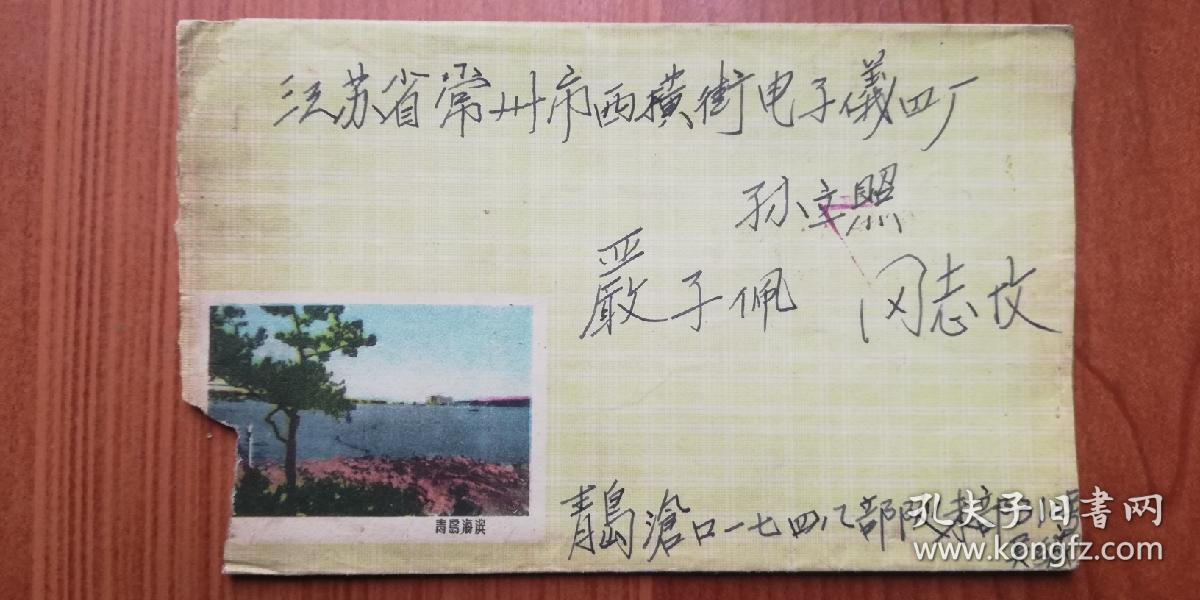 江苏省常州市西横街电子儀四厂
孙文照
嚴子佩 同志收
青島海滨
青島滄口一七四八部队
孔夫子旧书网
www.kongfz.com